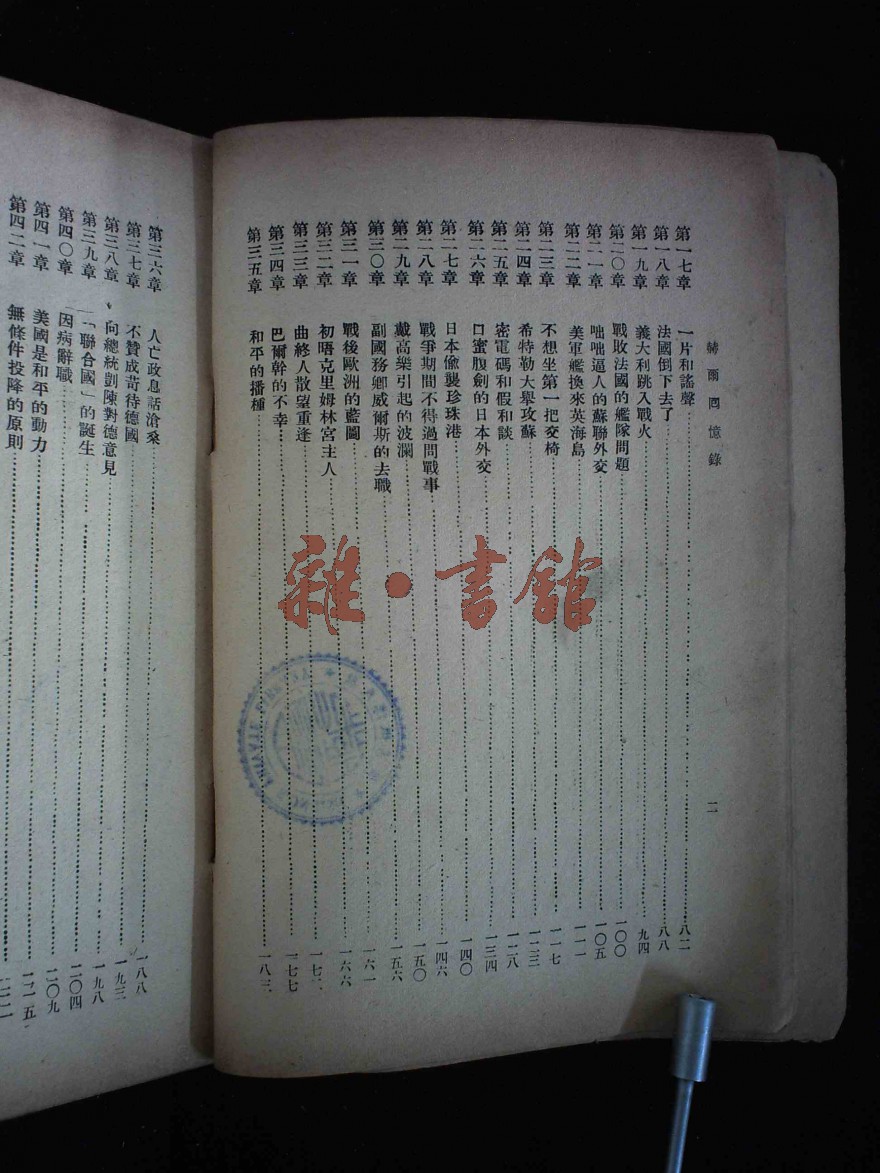 赫爾回憶錄
第一七章 一片和謠聲 八二
第一八章 法國倒下去了 八八
第一九章 義大利跳入戰火 九四
第二〇章 戰敗法國的艦隊問題 一〇〇
第二一章 咄咄逼人的蘇聯外交 一〇五
第二二章 美軍艦換來英海島 一一一
第二三章 不想坐第一把交椅 一一七
第二四章 希特勒大舉攻蘇 一二三
第二五章 密電碼和假和談 一二八
第二六章 口蜜腹劍的日本外交 一三四
第二七章 日本偷襲珍珠港 一四〇
第二八章 戰爭期間不得過問戰事 一四六
第二九章 戴高樂引起的波瀾 一五〇
第三〇章 副國務卿威爾斯的去職 一五六
第三一章 戰後歐洲的藍圖 一六一
第三二章 初晤克里姆林宮主人 一六六
第三三章 曲終人散望重逢 一七二
第三四章 巴爾幹的不幸 一七七
第三五章 和平的播種 一八三
二
第三六章 人亡政息話滄桑 一八八
第三七章 不贊成苛待德國 一九三
第三八章 向總統剴陳對德意見 一九八
第三九章 「聯合國」的誕生 二〇四
第四〇章 因病辭職 二〇九
第四一章 美國是和平的動力 二一五
第四二章 無條件投降的原則
雜·書館